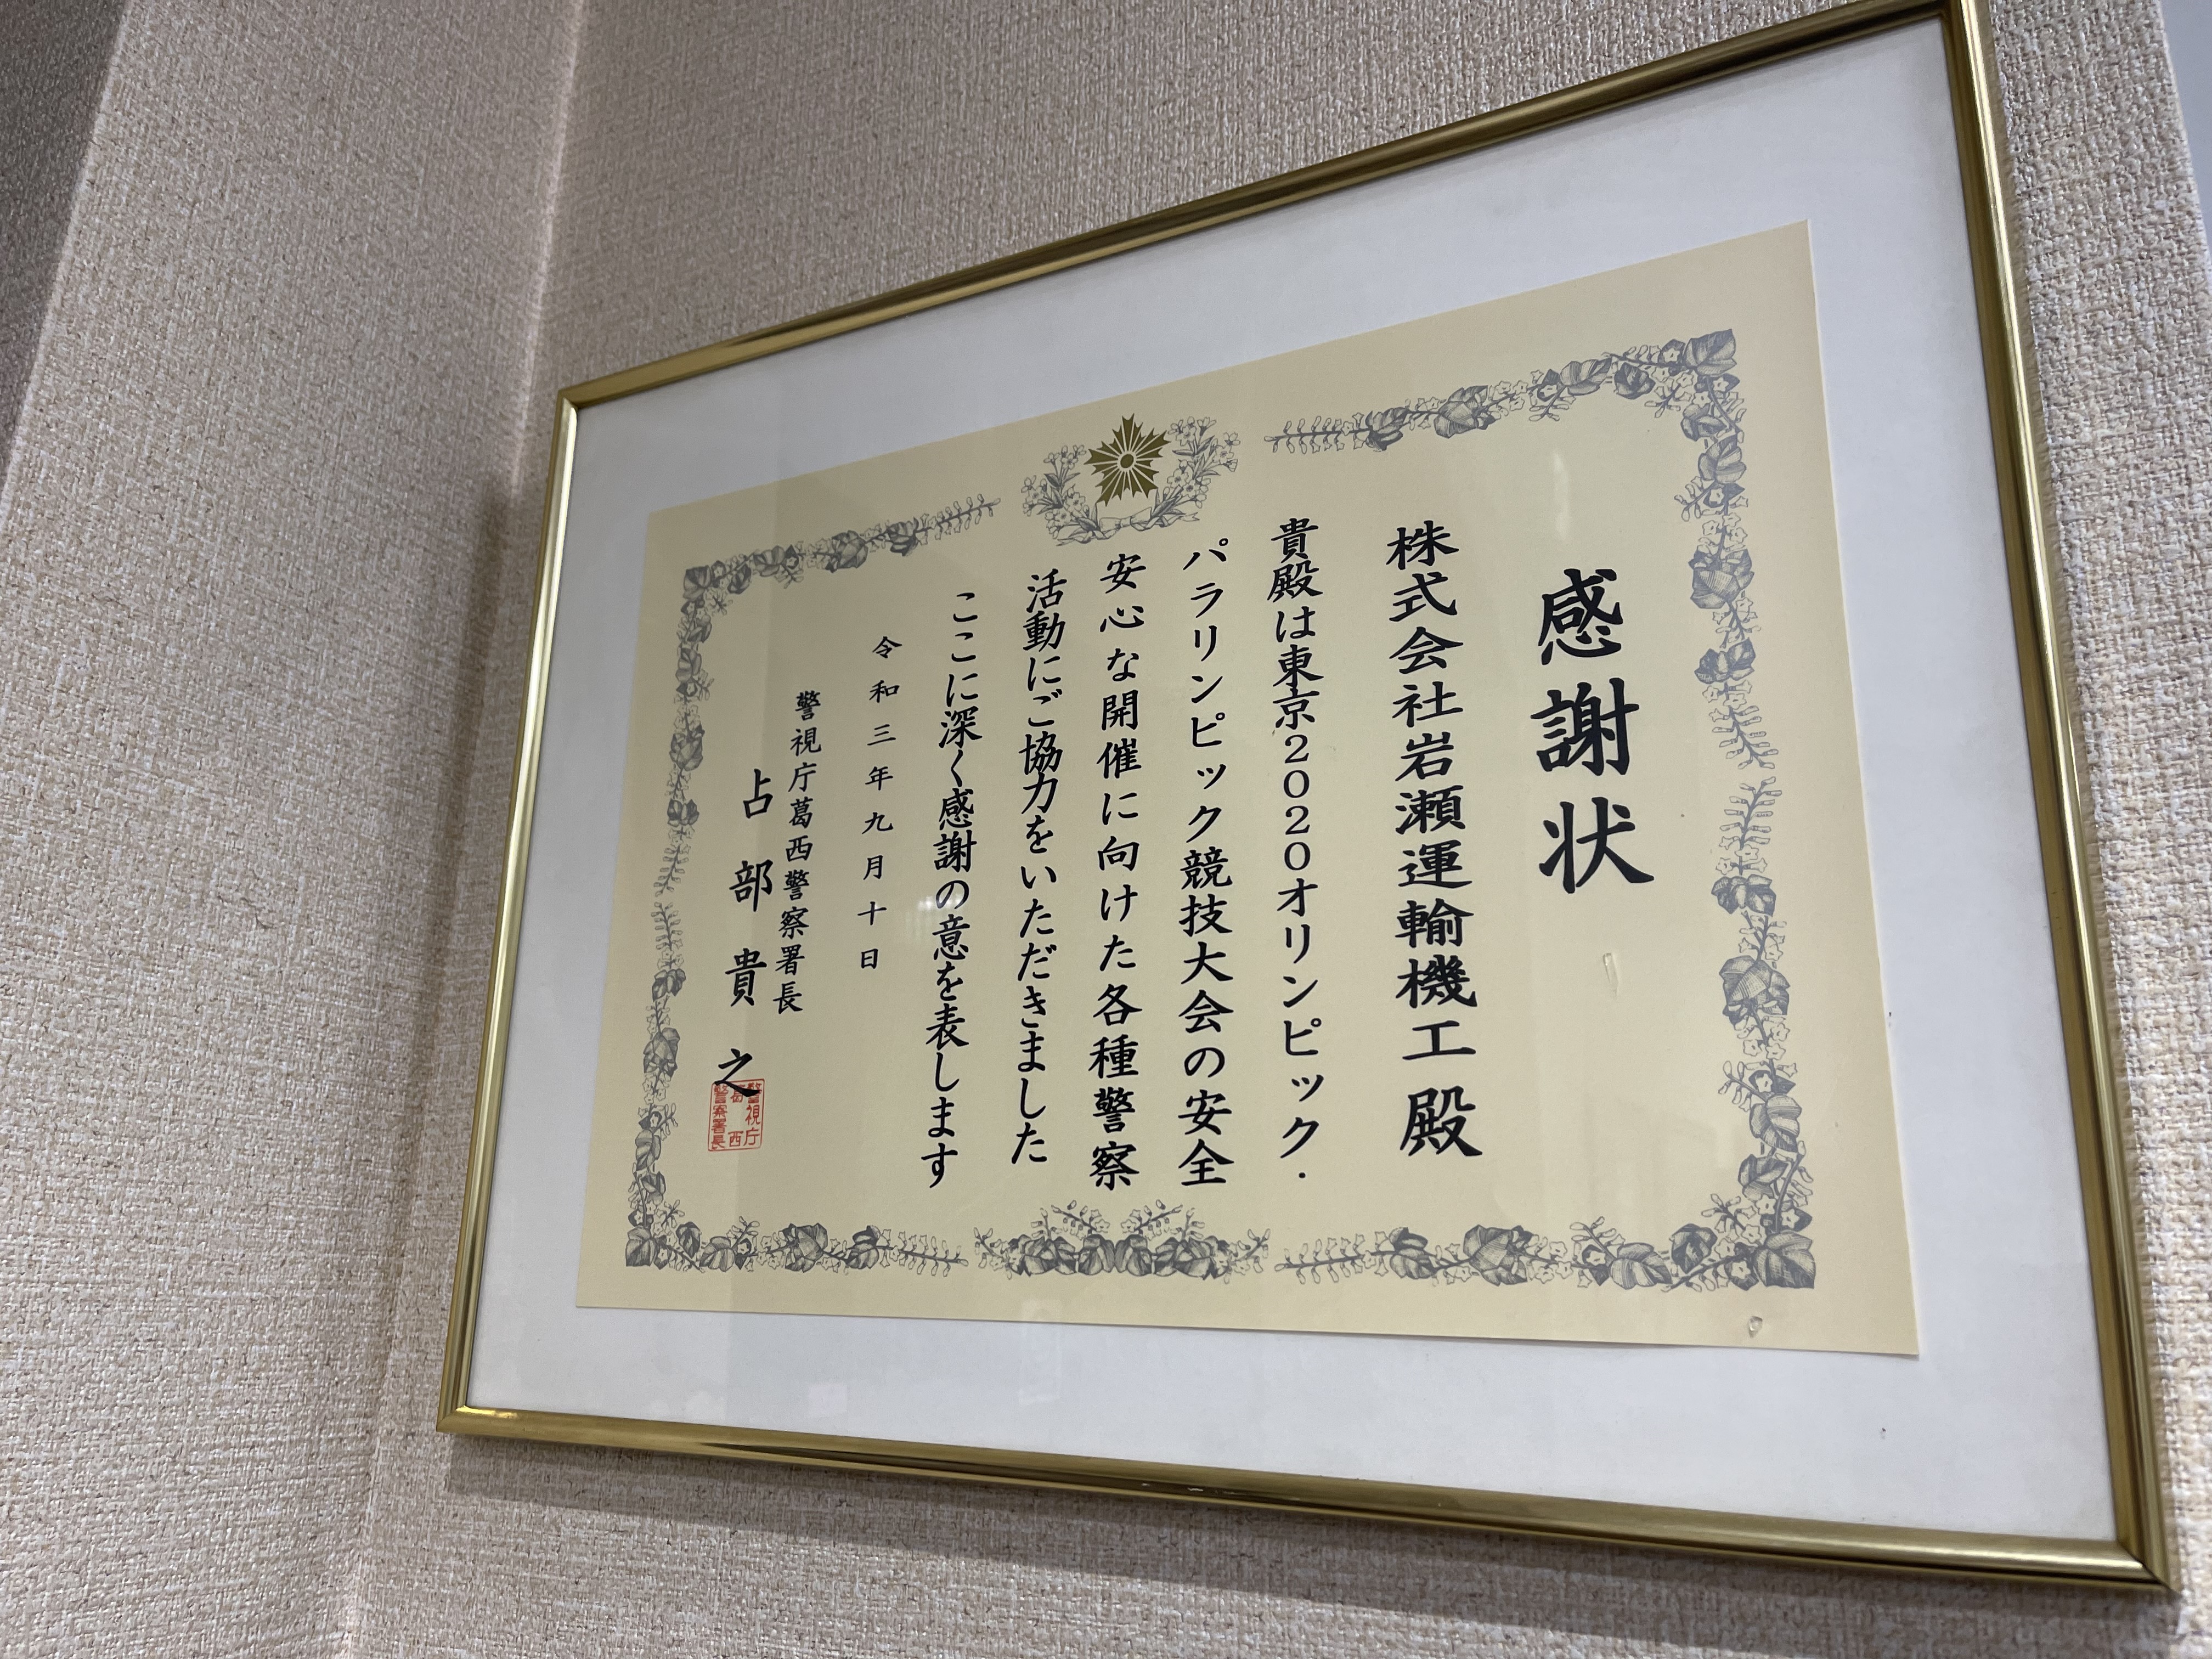 感謝状
株式会社岩瀬運輸機工殿
貴殿は東京2020オリンピック・
パラリンピック競技大会の安全
安心な開催に向けた各種警察
活動にご協力をいただきました
ここに深く感謝の意を表します
令和三年九月十日
警視庁葛西警察署長
占部貴之
警視庁
葛西
警察署長